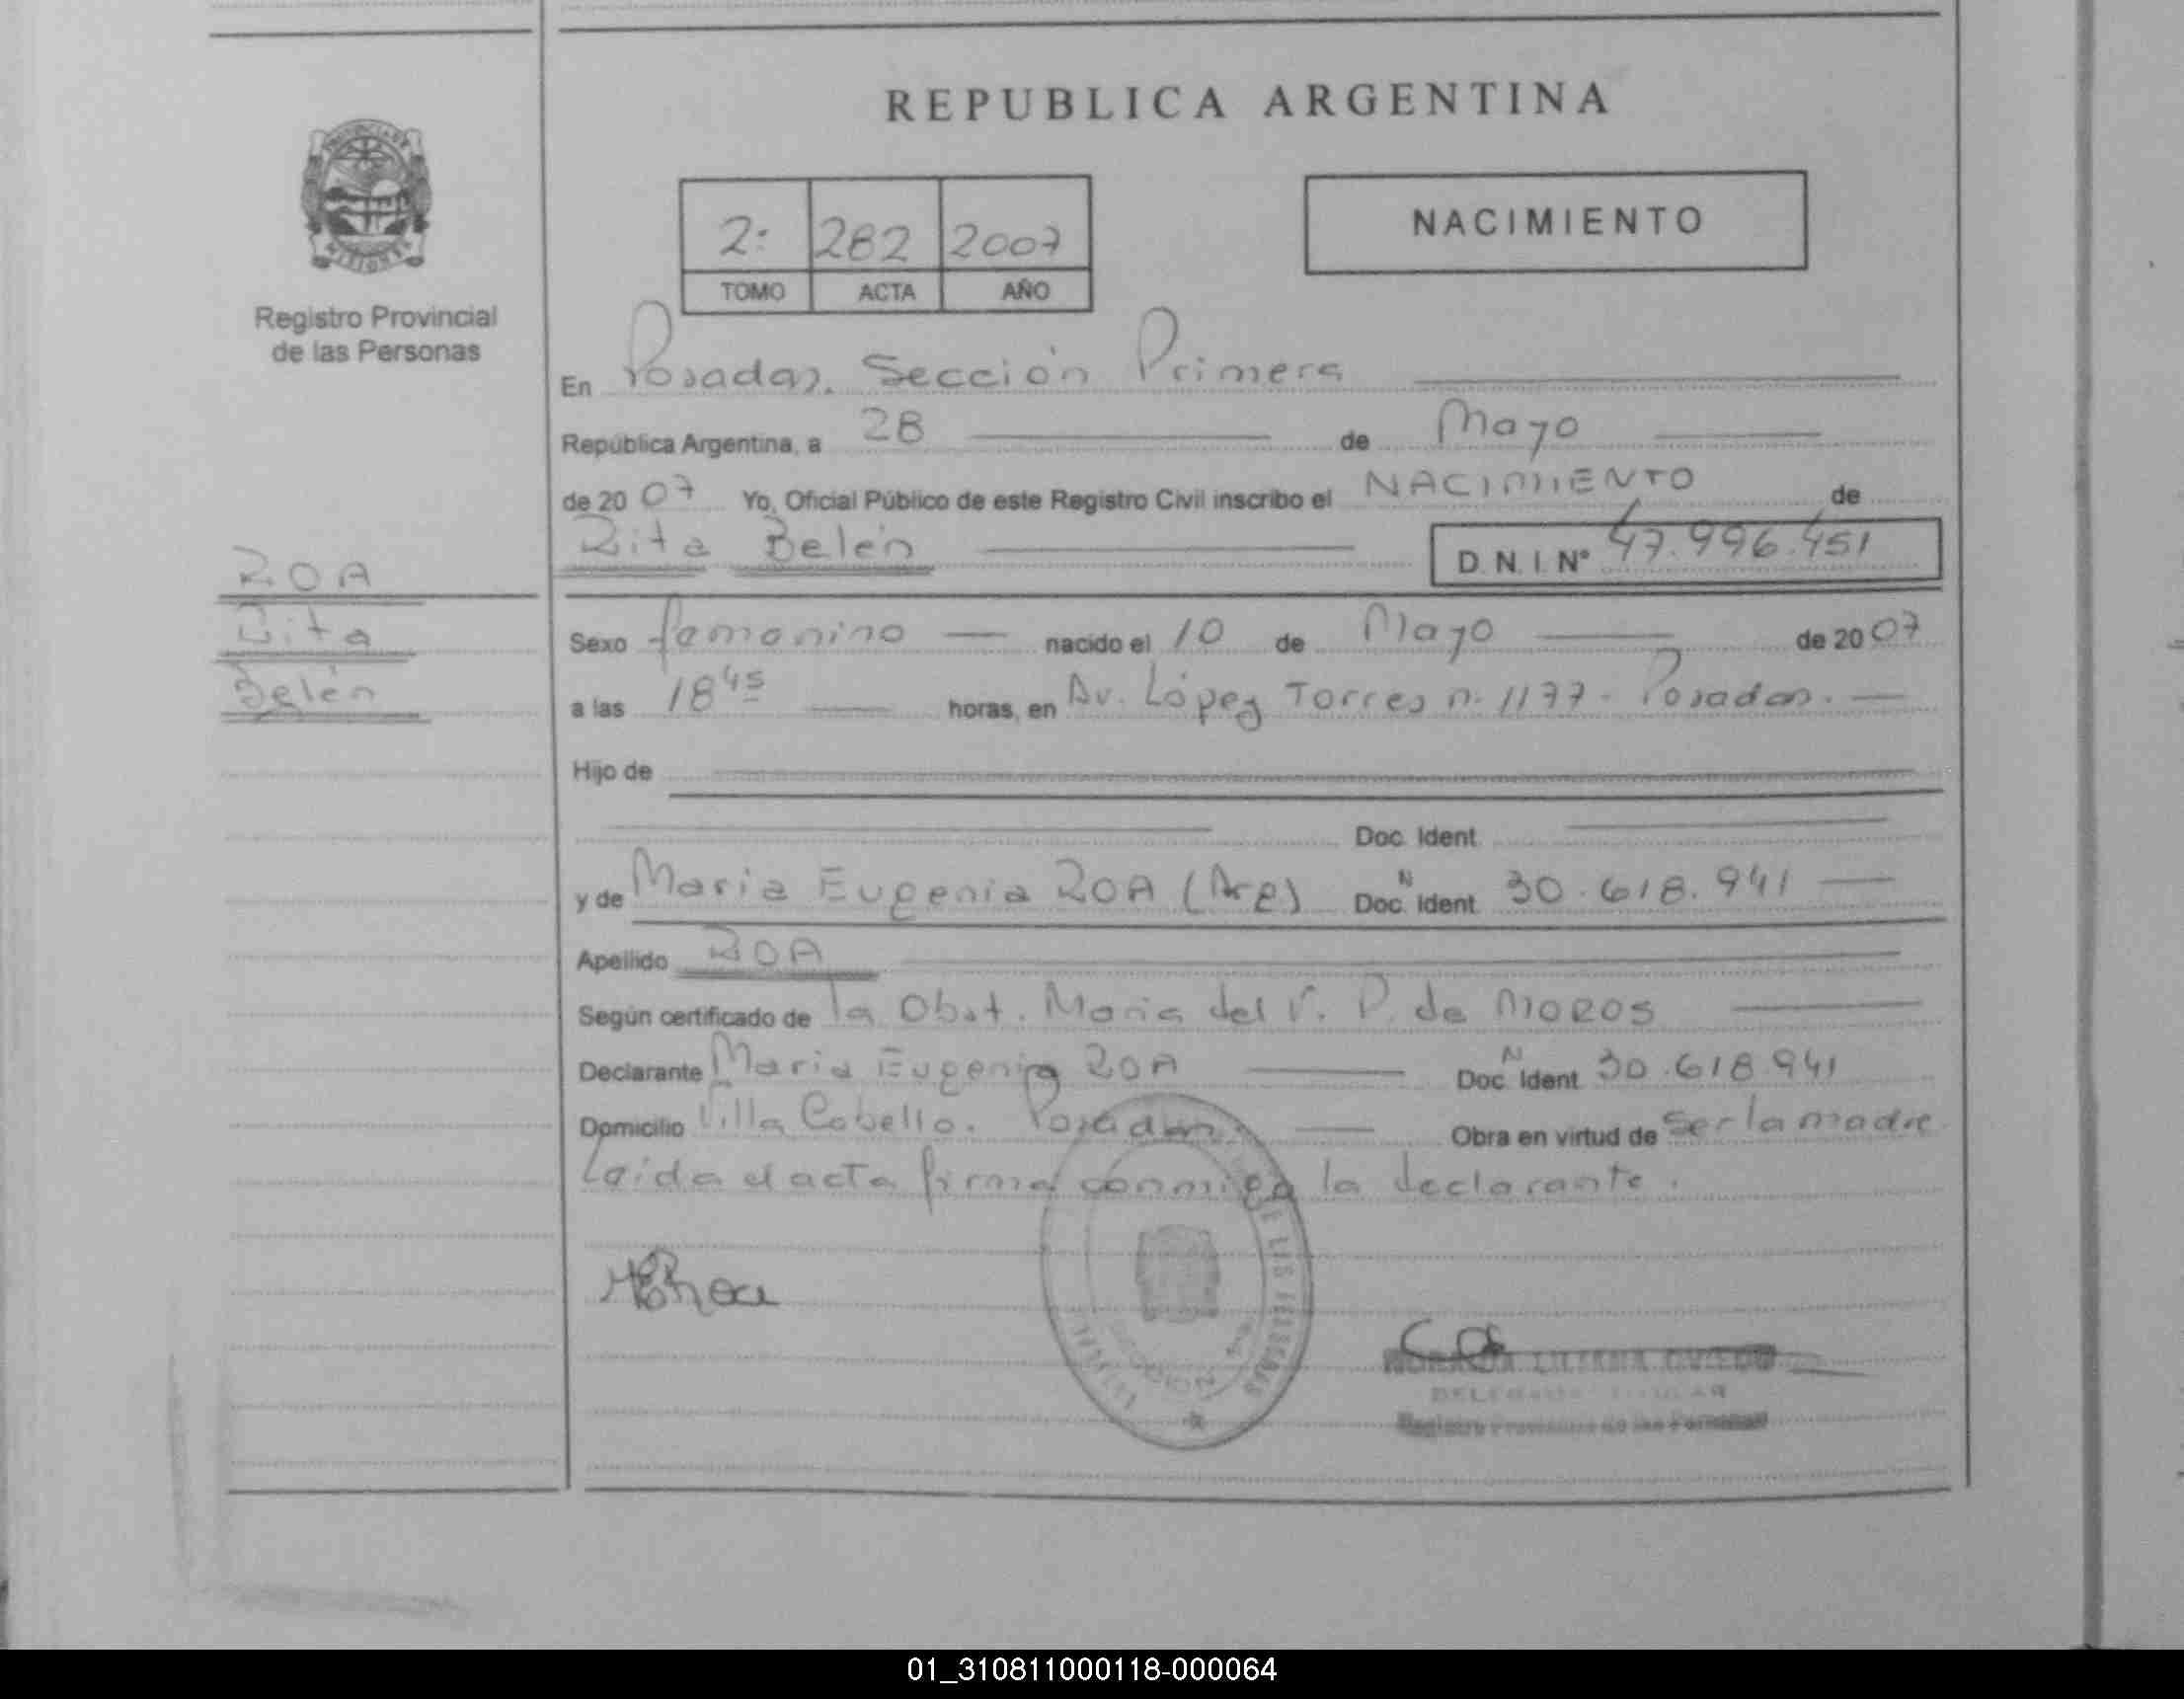 REPUBLICA ARGENTINA
2: 282 2007
TOMO ACTA AÑO
NACIMIENTO
Registro Provincial
de las Personas
En Posadas. Sección Primera
República Argentina, a 28 de Mayo
de 2007 Yo, Oficial Público de este Registro Civil inscribo el NACIMIENTO de
Rita Belén D. N. I. N° 47.996.451
ROA
Rita
Belén
Sexo femenino nacido el 10 de Mayo de 2007
a las 18 45 horas, en Av. López Torres n. 1177 - Posadas.
Hijo de
Doc. Ident.
y de Maria Eugenia ROA (Arg) Doc. N Ident. 30.618.941
Apellido ROA
Según certificado de la Obst. Maria del V. P. de MOROS
Declarante Maria Eugenia ROA Doc. N Ident. 30.618.941
Domicilio Villa Cabello. Posadas Obra en virtud de ser la madre
Leida el acta firma conmigo la declarante.
MERoa
LILIANA OVIEDO
DELEGADA TITULAR
Registro Provincial de las Personas
01_310811000118-000064